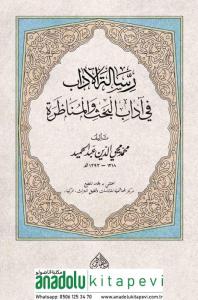 رسالة الآداب
في آداب البحث والمناظرة
تأليف
محمد محيي الدين عبد الحميد
١٣١٨ — ١٣٩٣ هـ
مكتبة الأناضول
anadolukitapevi
Whatsapp 0506 125 34 70
www.anadolukitapevi.com